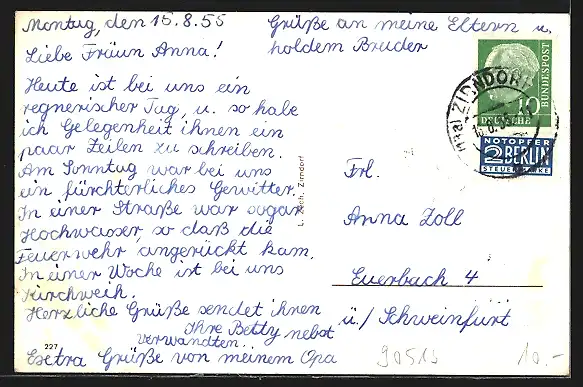 Montag, den 15.8.55
Grüße an meine Eltern u.
holdem Bruder
Liebe Fräun Anna!
Heute ist bei uns ein
regnerischer Tag, u. so habe
ich Gelegenheit ihnen ein
paar Zeilen zu schreiben.
Am Sonntag war bei uns
ein fürchterliches Gewitter.
In einer Straße war sogar
Hochwasser, so daß die
Feuerwehr angerückt kam.
In einer Woche ist bei uns
Kirchweih.
Herzliche Grüße sendet ihnen
Ihre Betty nebst
Verwandten.
Exetra Grüße von meinem Opa
227
Zirndorf
DEUTSCHE
BUNDESPOST
10
ZIRNDORF
NOTOPFER
2 BERLIN
STEUERMARKE
Frl.
Anna Zoll
Euerbach 4
ü./ Schweinfurt
90513
10.-